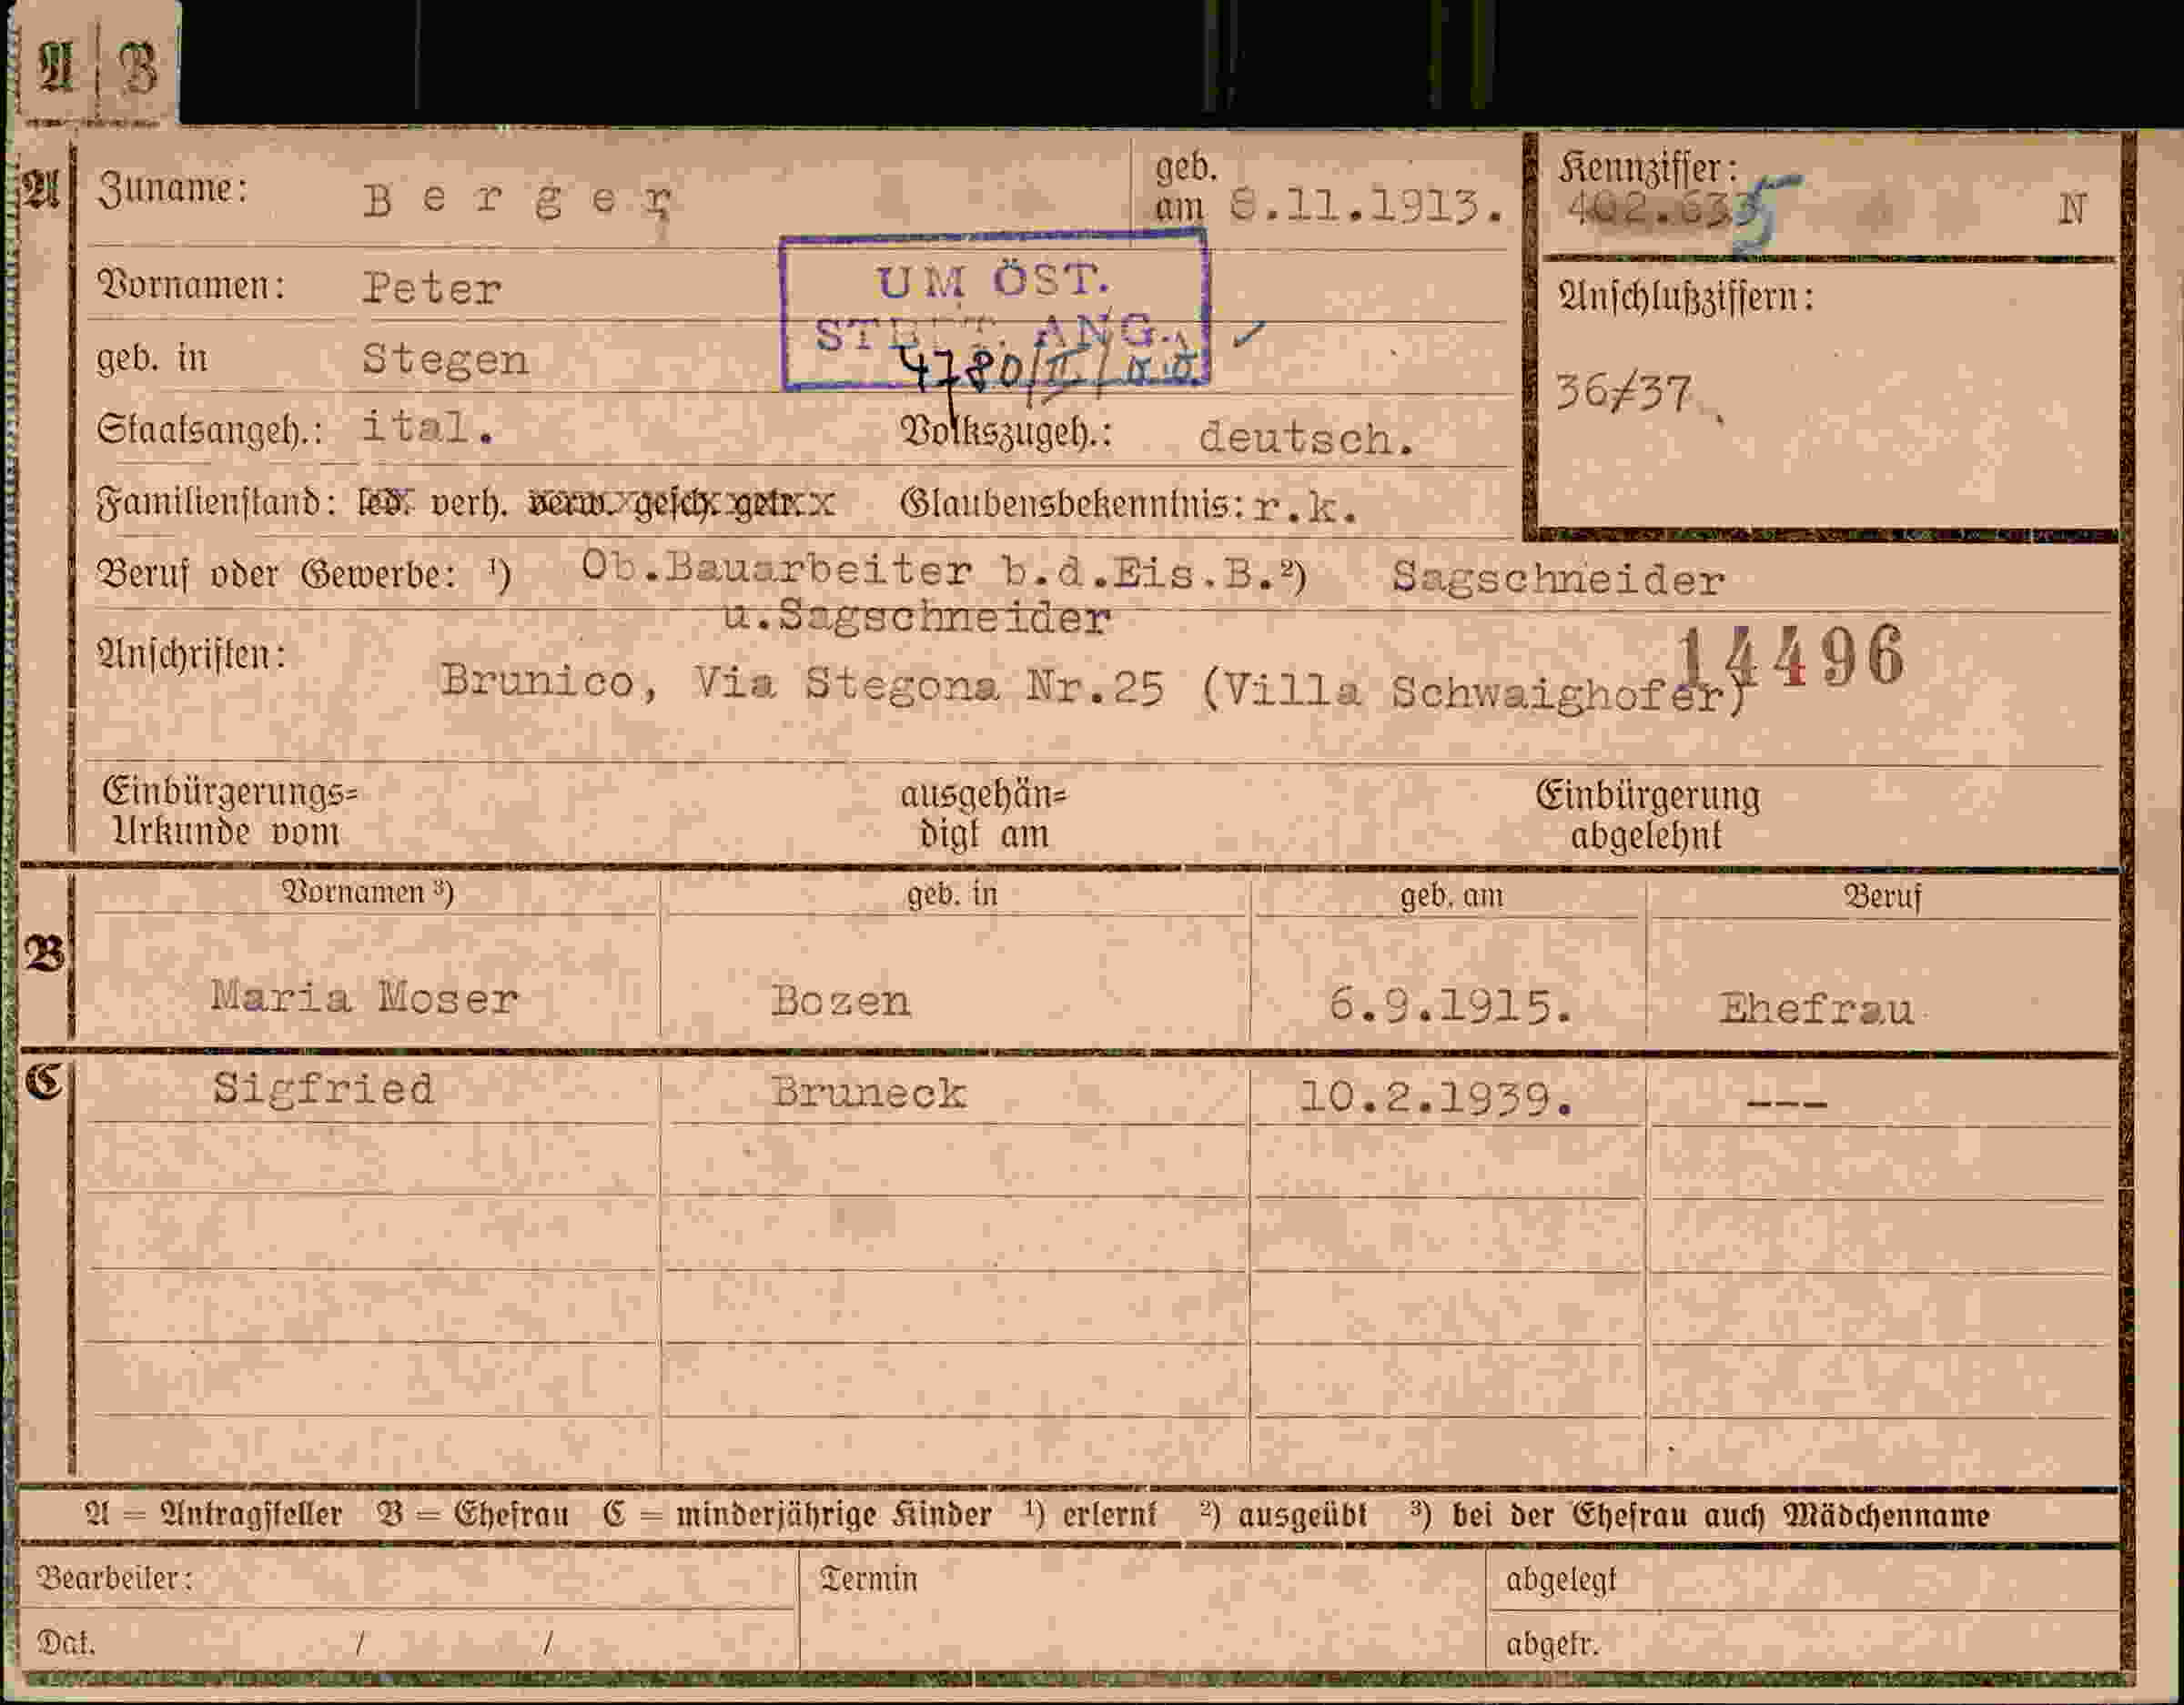 A | B
A Zuname: Berger geb. am 8.11.1913. Kennziffer: 402.635 N
Vornamen: Peter UM ÖST. Anschlußziffern:
geb. in Stegen ANG. 4780/II/
36/37
Staatsangeh.: ital. Volkszugeh.: deutsch.
Familienstand: led. verh. verw. gesch. getr. Glaubensbekenntnis: r.k.
Beruf oder Gewerbe: ¹) Ob.Bauarbeiter b.d.Eis.B. ²) Sagschneider
u.Sagschneider
14496
Anschriften: Brunico, Via Stegona Nr.25 (Villa Schwaighofer)
Einbürgerungs= ausgehän= Einbürgerung
Urkunde vom digt am abgelehnt
B Vornamen ³) geb. in geb. am Beruf
Maria Moser Bozen 6.9.1915. Ehefrau
C Sigfried Bruneck 10.2.1939. ---
A = Antragsteller B = Ehefrau C = minderjährige Kinder ¹) erlernt ²) ausgeübt ³) bei der Ehefrau auch Mädchenname
Bearbeiter: Termin abgelegt
Dat. / / abgetr.